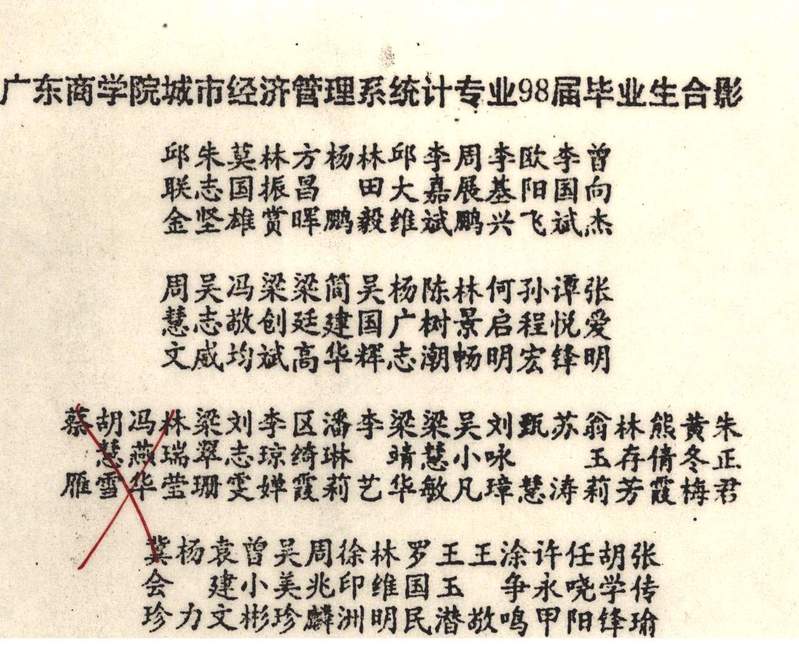 广东商学院城市经济管理系统计专业98届毕业生合影
邱联金
朱志坚
莫国雄
林振赏
方昌晖
杨鹏
林田毅
邱大维
李嘉斌
周展鹏
李基兴
欧阳飞
李国斌
曾向杰
周慧文
吴志威
冯敬均
梁创斌
梁廷高
简建华
吴国辉
杨广志
陈树潮
林景畅
何启明
孙程宏
谭悦锋
张爱明
蔡雁
胡慧雪
冯燕华
林瑞莹
梁翠珊
刘志雯
李琼婵
区绮霞
潘琳莉
李艺
梁晴华
梁慧敏
吴小凡
刘咏璋
甄慧
苏涛
翁玉莉
林存芳
熊倩霞
黄冬梅
朱正君
冀会珍
杨力
袁建文
曾小彬
吴美珍
周兆麟
徐印洲
林维明
罗国民
王玉潜
王敬
涂争鸣
许永甲
任哓阳
胡学锋
张传瑜